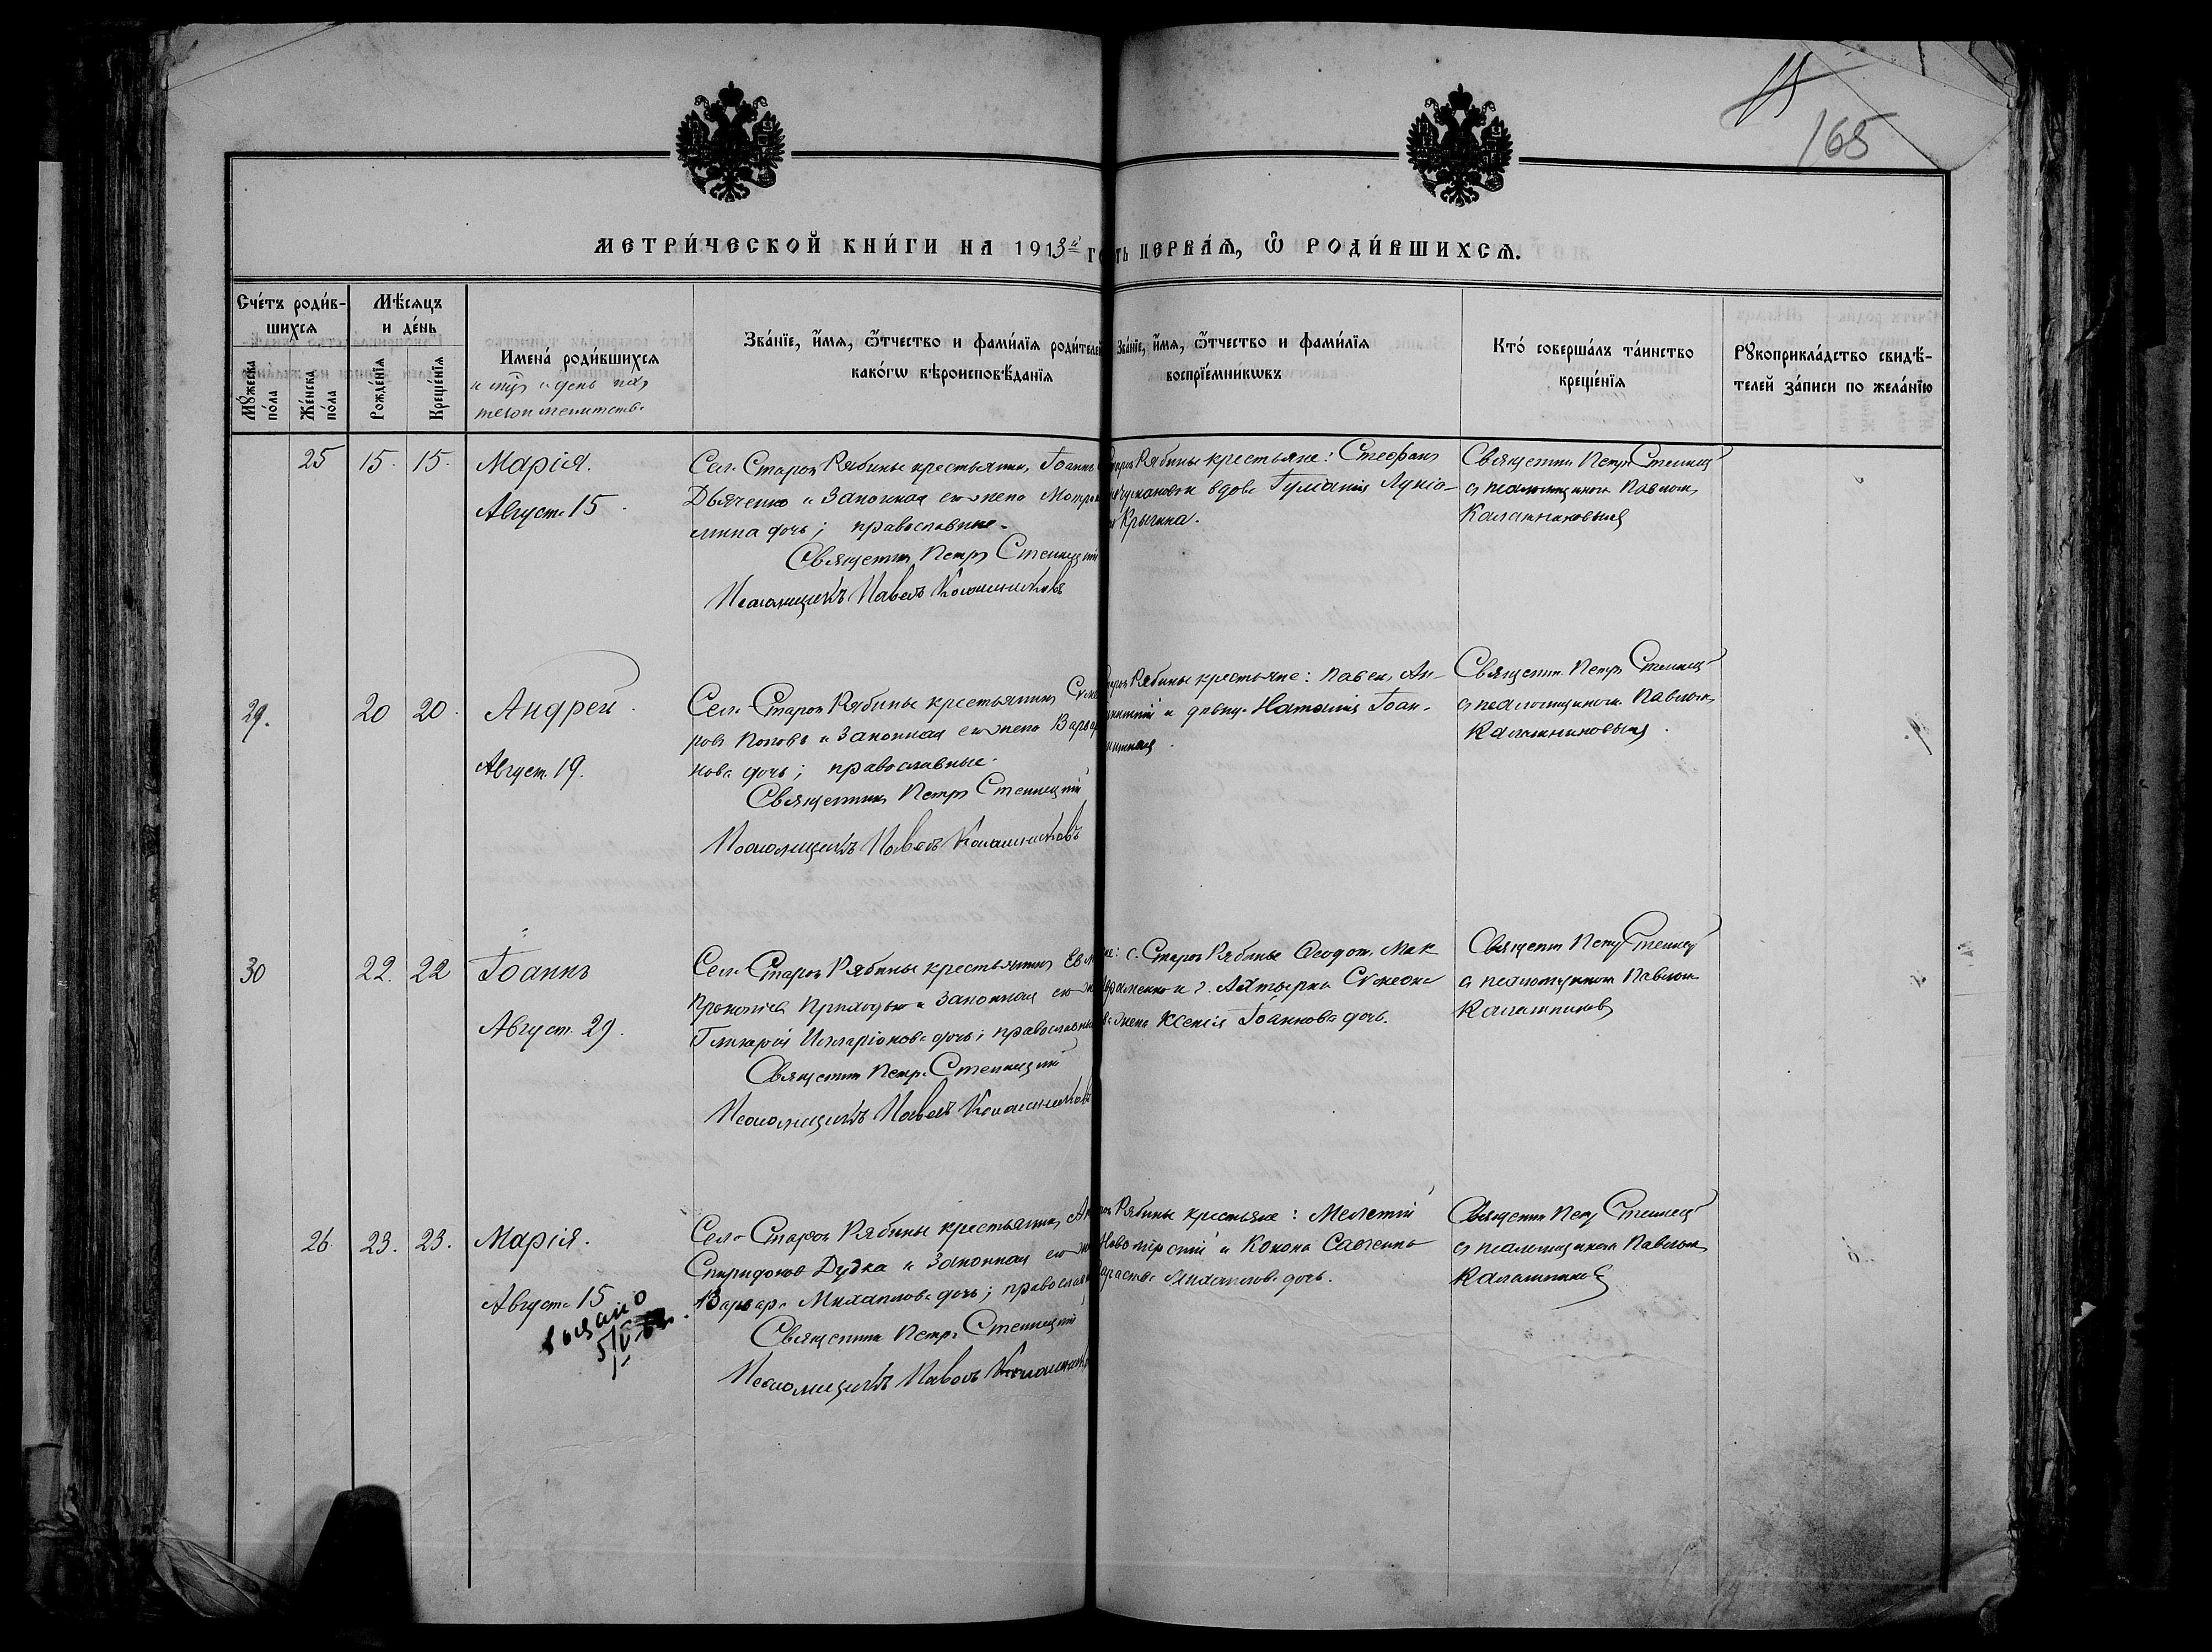 165
МЕТРИ́ЧЕСКОЙ КНИ́ГИ НА 1913й Г
ть ПЕРВА́Ѧ, Ѽ РОДИ́ВШИХСѦ.
Сче́тъ роди́в-
шихсѧ
Мꙋ́жеска по́ла
Же́нска по́ла
Мѣ́сѧцъ
и де́нь
Рожде́нїѧ
Креще́нїѧ
Имена́ роди́вшихсѧ
и день
Зва́нїе, и҆́мѧ, ѻ҆́тчество и фами́лїѧ роди́телей
како́гѡ вѣроисповѣ́данїѧ
Зва́нїе, и҆́мѧ, ѻ҆́тчество и фами́лїѧ
воспрїе́мникѡвъ
Кто́ соверша́лъ та́инство
креще́нїѧ
Рꙋкоприкла́дство свидѣ́-
телей за́писи по жела́нїю
25 15. 15. Марія.
Август. 15.
Сел. Старой Рябины крестьянинъ Іоаннъ
Дьяченко и законная его жена
дочь; православные.
Священникъ Петръ Степницкій
Псаломщикъ Павелъ Калашниковъ
Рябины крестьяне: Стефанъ
вдова
Крыгина.
Священник Петръ
съ псаломщикомъ Павломъ
Калашниковымъ
29. 20 20. Андрей.
Август. 19.
Сел. Старой Рябины крестьянинъ
ровъ Поповъ и законная его жена Варвар
нова дочь; православные.
Священникъ Петръ Степницкій
Псаломщикъ Павелъ Калашниковъ
Рябины крестьяне: Павелъ
и девица Наталія Іоан-
Священник. Петръ
съ псаломщикомъ Павломъ
Калашниковымъ.
30 22. 22 Іоаннъ
Август. 29.
Сел. Старой Рябины крестьянинъ
Прокопіевъ Приходько и законная его
Гликерія Илларіонова дочь; православны
Священник Петръ Степницкій
Псаломщикъ Павелъ Калашниковъ
с. Старой Рябины Ѳеодотъ Мак
и г. Ахтырка Сѵмеона
жена Ксенія Іоаннова дочь.
Священ. Петръ
съ псаломщикомъ Павлом
Калашников
26. 23. 23. Марія.
Август. 15
Село Старой Рябины крестьянинъ
Спиридонов Дудка и законная его
Варвара Михаилова дочь; православн
Священник Петръ Степницкій
Псаломщикъ Павелъ
Рябины крестьяне: Мелетій
и Конона Савченко
Михаилова дочь.
Священник Петръ
съ псаломщикомъ Павломъ
Калашников